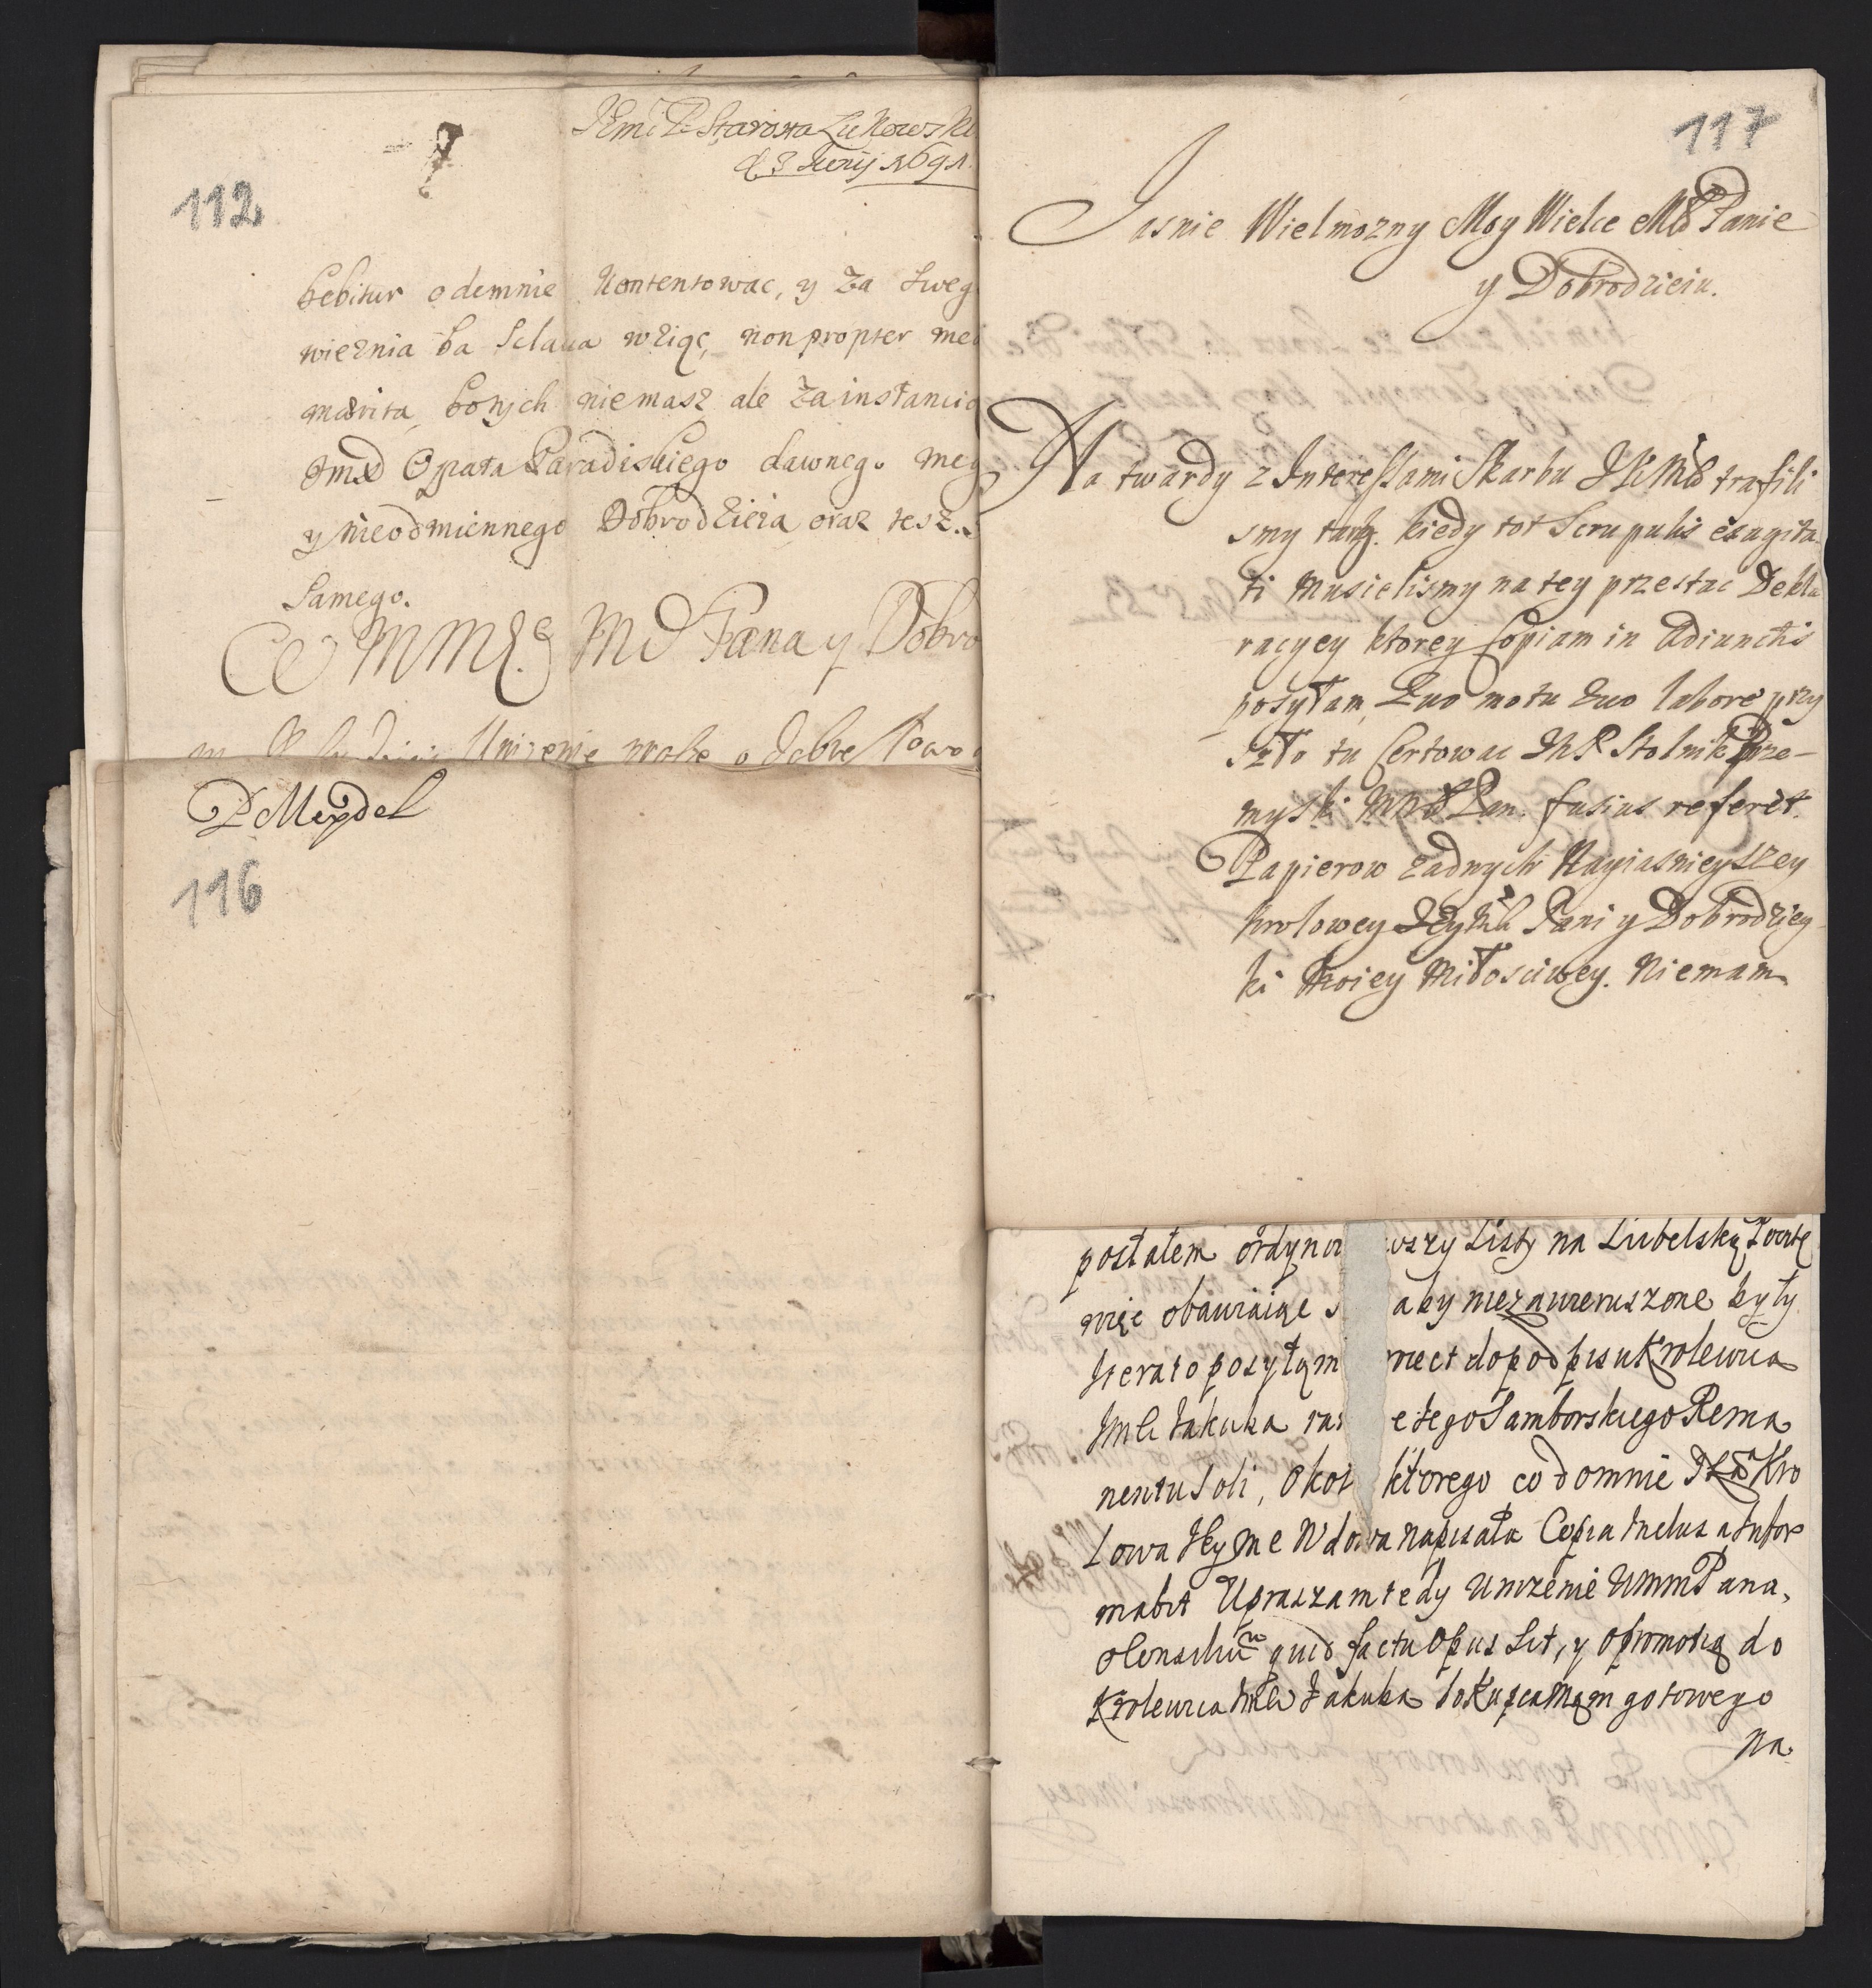 Starosta Łukowski
d. 3 Junij 1691.
112
bebitur odemnie kontentowac, y za sweg
wieznia ba Sclava wziąć, non propter me
merita, ktorych niemasz ale za instancią
Opata Paradiskiego dawnego meg
y nieodmiennego Dobrodzieia oraz tesz
Samego.
Pana y Dobro
Unizenie prosze o dobre słowo
P Meydel
116
117
Jasnie Wielmozny Moy Wielce Mśł Panie
y Dobrodzieiu.
Na twardy z Interessami Skarbu JKMśł trafili
smy targ. kiedy tot Scrupulis exagita
ti Musielismy na tey przestac Dekla
racyey ktorey Copiam in Adiunctis
posyłam, Quo motu Quo labore przy
szło tu Certowac JMP Stolnik Prze-
myski MMśł Pan. fusius referet.
Papierow zadnych Nayiasnieyszey
krolowey JeyMśł Pani y Dobrodziey
ki Moiey Miłosciwey. Niemam
posłałem ordynow wszy Listy na Lubelską Pocztę
więc obawiaiąc s aby niezawieruszone były
Iterato posyłąm do podpisu Krolewica
Jmśi Jakuba tego Samborskiego Rema
nentu Soli, Okoł ktorego co do mnie Kro
lowa Jeyme Wdowa napisała Copia inclus a infor
mabit Upraszam tedy Unizenie WMMPana,
o Consiliu quid factu Opus Sit, y o promotią do
Krolewica Jmśi Jakuba bo Kupca Mąm gotowego
na